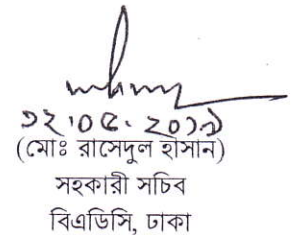 ১২.০৫.২০১৯
(মোঃ রাসেদুল হাসান)
সহকারী সচিব
বিএডিসি, ঢাকা